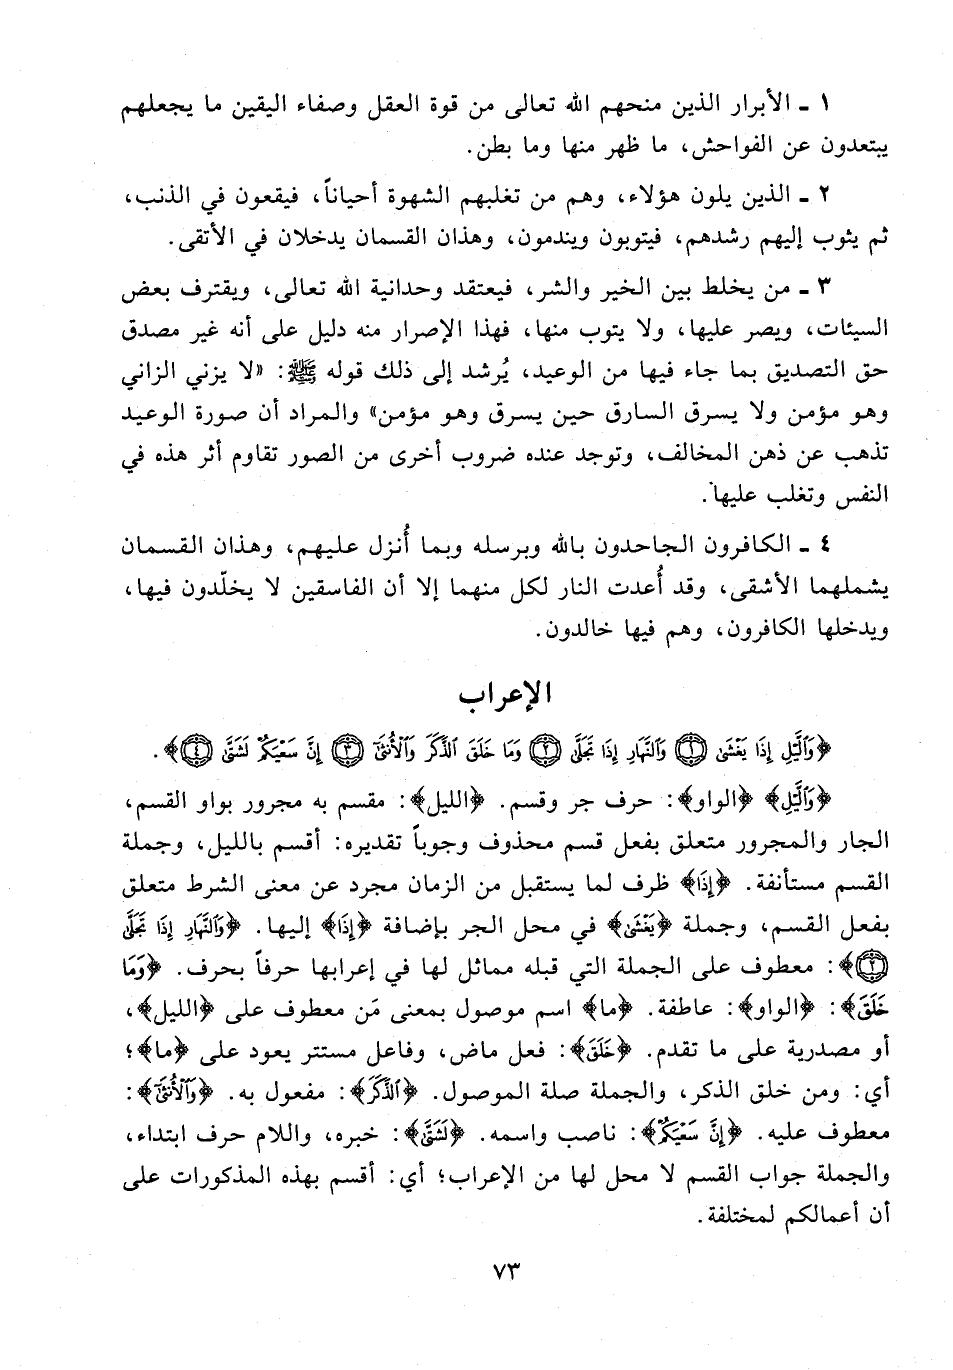 ١ ـ الأبرار الذين منحهم الله تعالى من قوة العقل وصفاء اليقين ما يجعلهم
يبتعدون عن الفواحش، ما ظهر منها وما بطن.
٢ ـ الذين يلون هؤلاء، وهم من تغلبهم الشهوة أحياناً، فيقعون في الذنب،
ثم يثوب إليهم رشدهم، فيتوبون ويندمون، وهذان القسمان يدخلان في الأتقى.
٣ ـ من يخلط بين الخير والشر، فيعتقد وحدانية الله تعالى، ويقترف بعض
السيئات، ويصر عليها، ولا يتوب منها، فهذا الإصرار منه دليل على أنه غير مصدق
حق التصديق بما جاء فيها من الوعيد، يُرشد إلى ذلك قوله ﷺ: «لا يزني الزاني
وهو مؤمن ولا يسرق السارق حين يسرق وهو مؤمن» والمراد أن صورة الوعيد
تذهب عن ذهن المخالف، وتوجد عنده ضروب أخرى من الصور تقاوم أثر هذه في
النفس وتغلب عليها.
٤ ـ الكافرون الجاحدون بالله وبرسله وبما أُنزل عليهم، وهذان القسمان
يشملهما الأشقى، وقد أُعدت النار لكل منهما إلا أن الفاسقين لا يخلّدون فيها،
ويدخلها الكافرون، وهم فيها خالدون.
الإعراب
﴿وَٱلَّيْلِ إِذَا يَغْشَىٰ ١ وَٱلنَّهَارِ إِذَا تَجَلَّىٰ ٢ وَمَا خَلَقَ ٱلذَّكَرَ وَٱلْأُنثَىٰٓ ٣ إِنَّ سَعْيَكُمْ لَشَتَّىٰ ٤﴾.
﴿وَٱلَّيْلِ﴾ ﴿الواو﴾: حرف جر وقسم. ﴿الليل﴾: مقسم به مجرور بواو القسم،
الجار والمجرور متعلق بفعل قسم محذوف وجوباً تقديره: أقسم بالليل، وجملة
القسم مستأنفة. ﴿إِذَا﴾ ظرف لما يستقبل من الزمان مجرد عن معنى الشرط متعلق
بفعل القسم، وجملة ﴿يَغْشَىٰ﴾ في محل الجر بإضافة ﴿إِذَا﴾ إليها. ﴿وَٱلنَّهَارِ إِذَا تَجَلَّىٰ
٢﴾: معطوف على الجملة التي قبله مماثل لها في إعرابها حرفاً بحرف. ﴿وَمَا
خَلَقَ﴾: ﴿الواو﴾: عاطفة. ﴿ما﴾ اسم موصول بمعنى مَن معطوف على ﴿الليل﴾،
أو مصدرية على ما تقدم. ﴿خَلَقَ﴾: فعل ماض، وفاعل مستتر يعود على ﴿ما﴾؛
أي: ومن خلق الذكر، والجملة صلة الموصول. ﴿ٱلذَّكَرَ﴾: مفعول به. ﴿وَٱلْأُنثَىٰٓ﴾:
معطوف عليه. ﴿إِنَّ سَعْيَكُمْ﴾: ناصب واسمه. ﴿لَشَتَّىٰ﴾: خبره، واللام حرف ابتداء،
والجملة جواب القسم لا محل لها من الإعراب؛ أي: أقسم بهذه المذكورات على
أن أعمالكم لمختلفة.
٧٣